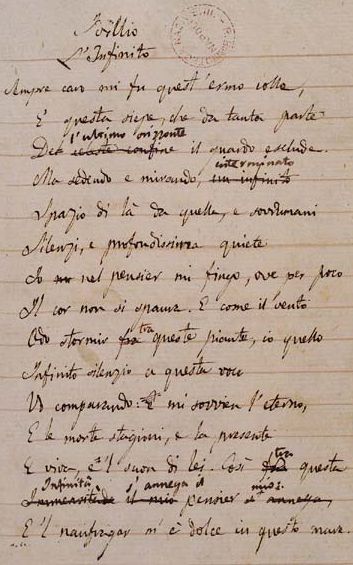 Idillio
L'Infinito
Sempre caro mi fu quest'ermo colle,
E questa siepe, che da tanta parte
l'ultimo orizzonte
De celeste confine il guardo esclude.
interminato
Ma sedendo e mirando, un infinito
Spazio di là da quella, e sovrumani
Silenzi, e profondissima quiete
Io nel pensier mi fingo, ove per poco
Il cor non si spaura. E come il vento
tra
Odo stormir fra queste piante, io quello
Infinito silenzio a questa voce
Vo comparando: E mi sovvien l'eterno,
E le morte stagioni, e la presente
tra
E viva, e 'l suon di lei. Così fra questa
Infinità s'annega il mio:
Immensitade il mio pensier s'annega,
E 'l naufragar m'è dolce in questo mare.